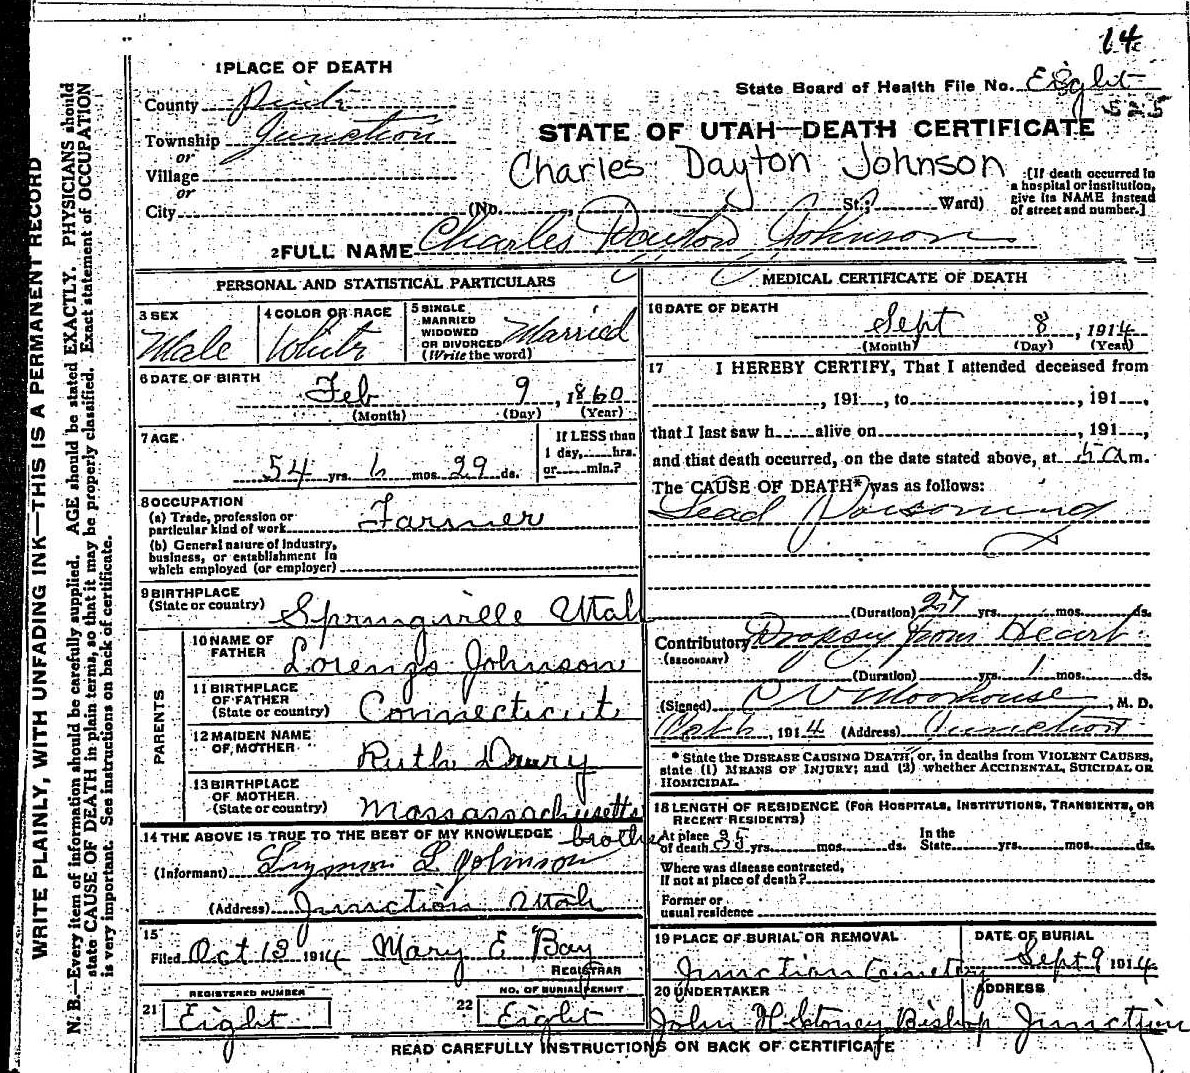 64
1 PLACE OF DEATH
State Board of Health File No. Eight
525
County
Township Junction
or
Village
or
City
STATE OF UTAH—DEATH CERTIFICATE
Charles Dayton Johnson
(No. St.; Ward)
[If death occurred in
a hospital or institution,
give its NAME instead
of street and number.]
2 FULL NAME Charles Dayton Johnson
PERSONAL AND STATISTICAL PARTICULARS
3 SEX
Male
4 COLOR OR RACE
White
5 SINGLE
MARRIED
WIDOWED
OR DIVORCED
(Write the word)
Married
6 DATE OF BIRTH
Feb 9, 1860
(Month) (Day) (Year)
7 AGE
54 yrs. 6 mos. 29 ds.
If LESS than
1 day, hrs.
or min.?
8 OCCUPATION
(a) Trade, profession or
particular kind of work Farmer
(b) General nature of industry,
business, or establishment in
which employed (or employer)
9 BIRTHPLACE
(State or country)
Springville Utah
PARENTS
10 NAME OF
FATHER
Lorenzo Johnson
11 BIRTHPLACE
OF FATHER
(State or country)
Connecticut
12 MAIDEN NAME
OF MOTHER
Ruth Drury
13 BIRTHPLACE
OF MOTHER
(State or country)
Massassachusetts
14 THE ABOVE IS TRUE TO THE BEST OF MY KNOWLEDGE
brother
(Informant) Lyman L Johnson
(Address) Junction Utah
15
Filed Oct 13 1914 Mary E Bay
REGISTRAR
21 REGISTERED NUMBER
Eight
22 NO. OF BURIAL PERMIT
Eight
MEDICAL CERTIFICATE OF DEATH
16 DATE OF DEATH
Sept 8, 1914
(Month) (Day) (Year)
17 I HEREBY CERTIFY, That I attended deceased from
, 191 , to , 191 ,
that I last saw h alive on , 191 ,
and that death occurred, on the date stated above, at 5 a m.
The CAUSE OF DEATH* was as follows:
Lead Poisoning
(Duration) 27 yrs. mos. ds.
Contributory Dropsy from Heart
(SECONDARY)
(Duration) yrs. 1 mos. ds.
(Signed) Moorhouse, M. D.
Oct 6, 1914 (Address) Junction
* State the DISEASE CAUSING DEATH, or, in deaths from VIOLENT CAUSES,
state (1) MEANS OF INJURY; and (2) whether ACCIDENTAL, SUICIDAL OR
HOMICIDAL.
18 LENGTH OF RESIDENCE (FOR HOSPITALS, INSTITUTIONS, TRANSIENTS, OR
RECENT RESIDENTS)
At place
of death 35 yrs. mos. ds.
In the
State yrs. mos. ds.
Where was disease contracted,
if not at place of death?
Former or
usual residence
19 PLACE OF BURIAL OR REMOVAL
Junction Cemetery
DATE OF BURIAL
Sept 9 1914
20 UNDERTAKER
John H Stoney Bishop
ADDRESS
Junction
READ CAREFULLY INSTRUCTIONS ON BACK OF CERTIFICATE
WRITE PLAINLY, WITH UNFADING INK—THIS IS A PERMANENT RECORD
N. B.—Every item of information should be carefully supplied. AGE should be stated EXACTLY. PHYSICIANS should
state CAUSE OF DEATH in plain terms, so that it may be properly classified. Exact statement of OCCUPATION
is very important. See instructions on back of certificate.